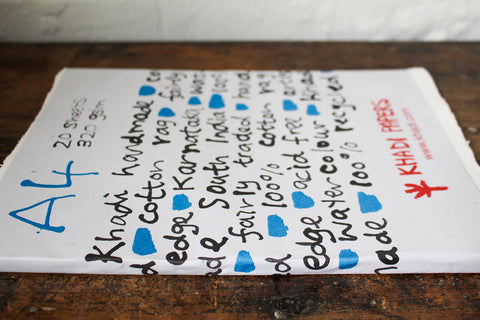 A4
20 sheets
320 gsm
Khadi handmade co
d cotton rag fairly
edge Karnataka
ade South India
fairly traded
d 100% cotton rag
edge acid free
watercolour
ade 100% recycled
KHADI PAPERS
www.khadi.com